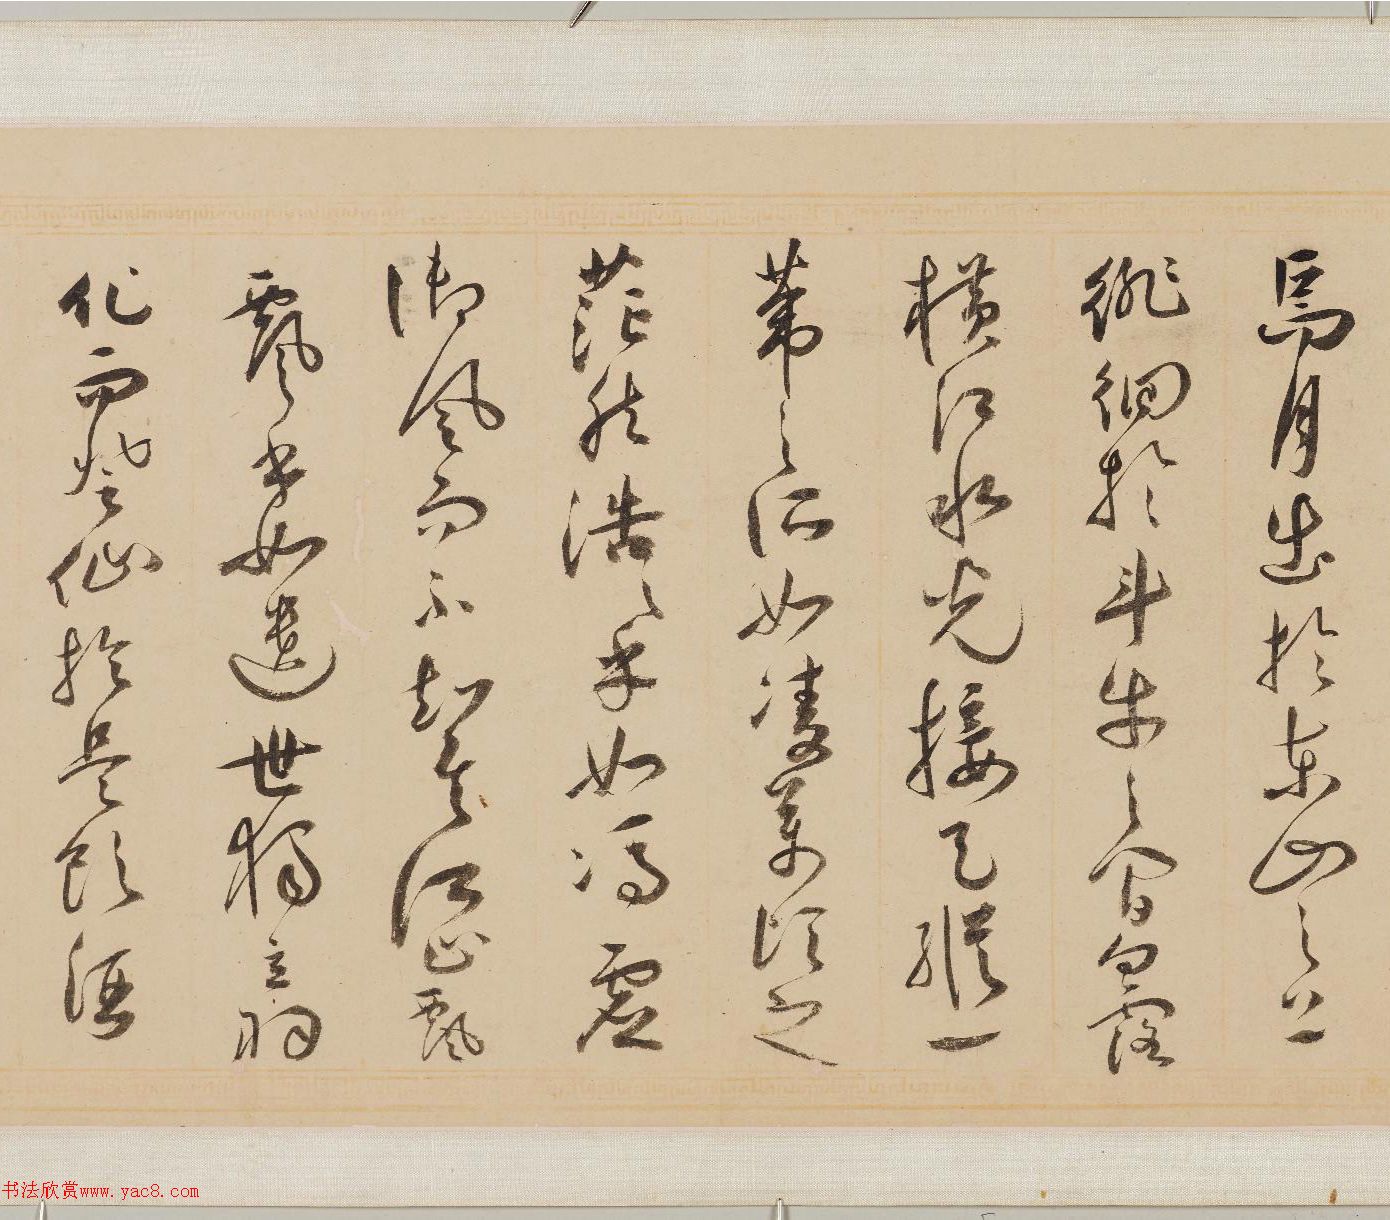 焉月出於東山之上
徘徊於斗牛之間白露
橫江水光接天縱一
葦之所如凌萬頃之
茫然浩〻乎如馮虛
御風而不知其所止飄
飄乎如遺世獨立羽
化而登仙於是飲酒
书法欣赏www.yac8.com